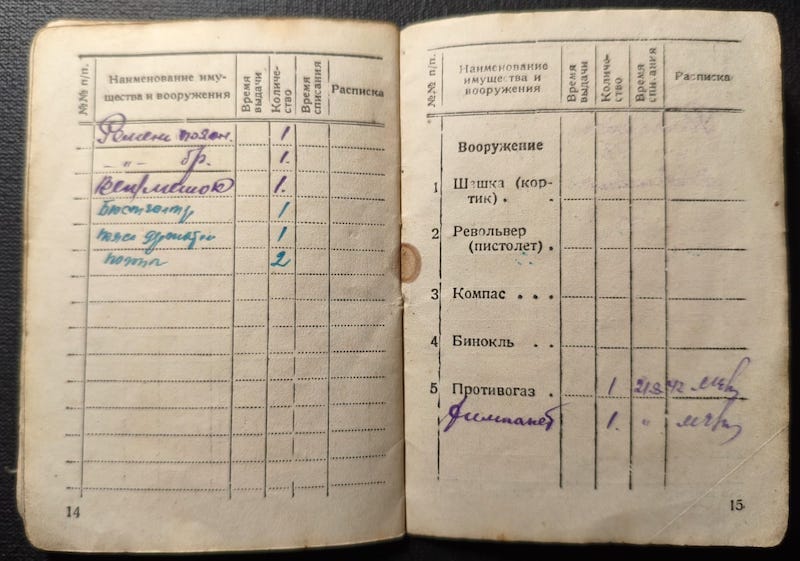 №№ п/п.
Наименование иму-
щества и вооружения
Время
выдачи
Количе-
ство
Время
списания
Расписка
Ремень поясн. 1.
— „ — бр. 1.
Вещмешок 1.
Бюстгалтер 1
пояс 1
2
14
№№ п/п.
Наименование
имущества и
вооружения
Время
выдачи
Количе-
ство
Время
списания
Расписка
Вооружение
1 Шашка (кор-
тик) . .
2 Револьвер
(пистолет) .
3 Компас . . .
4 Бинокль . .
5 Противогаз . 1 21.8.42
1. „
15